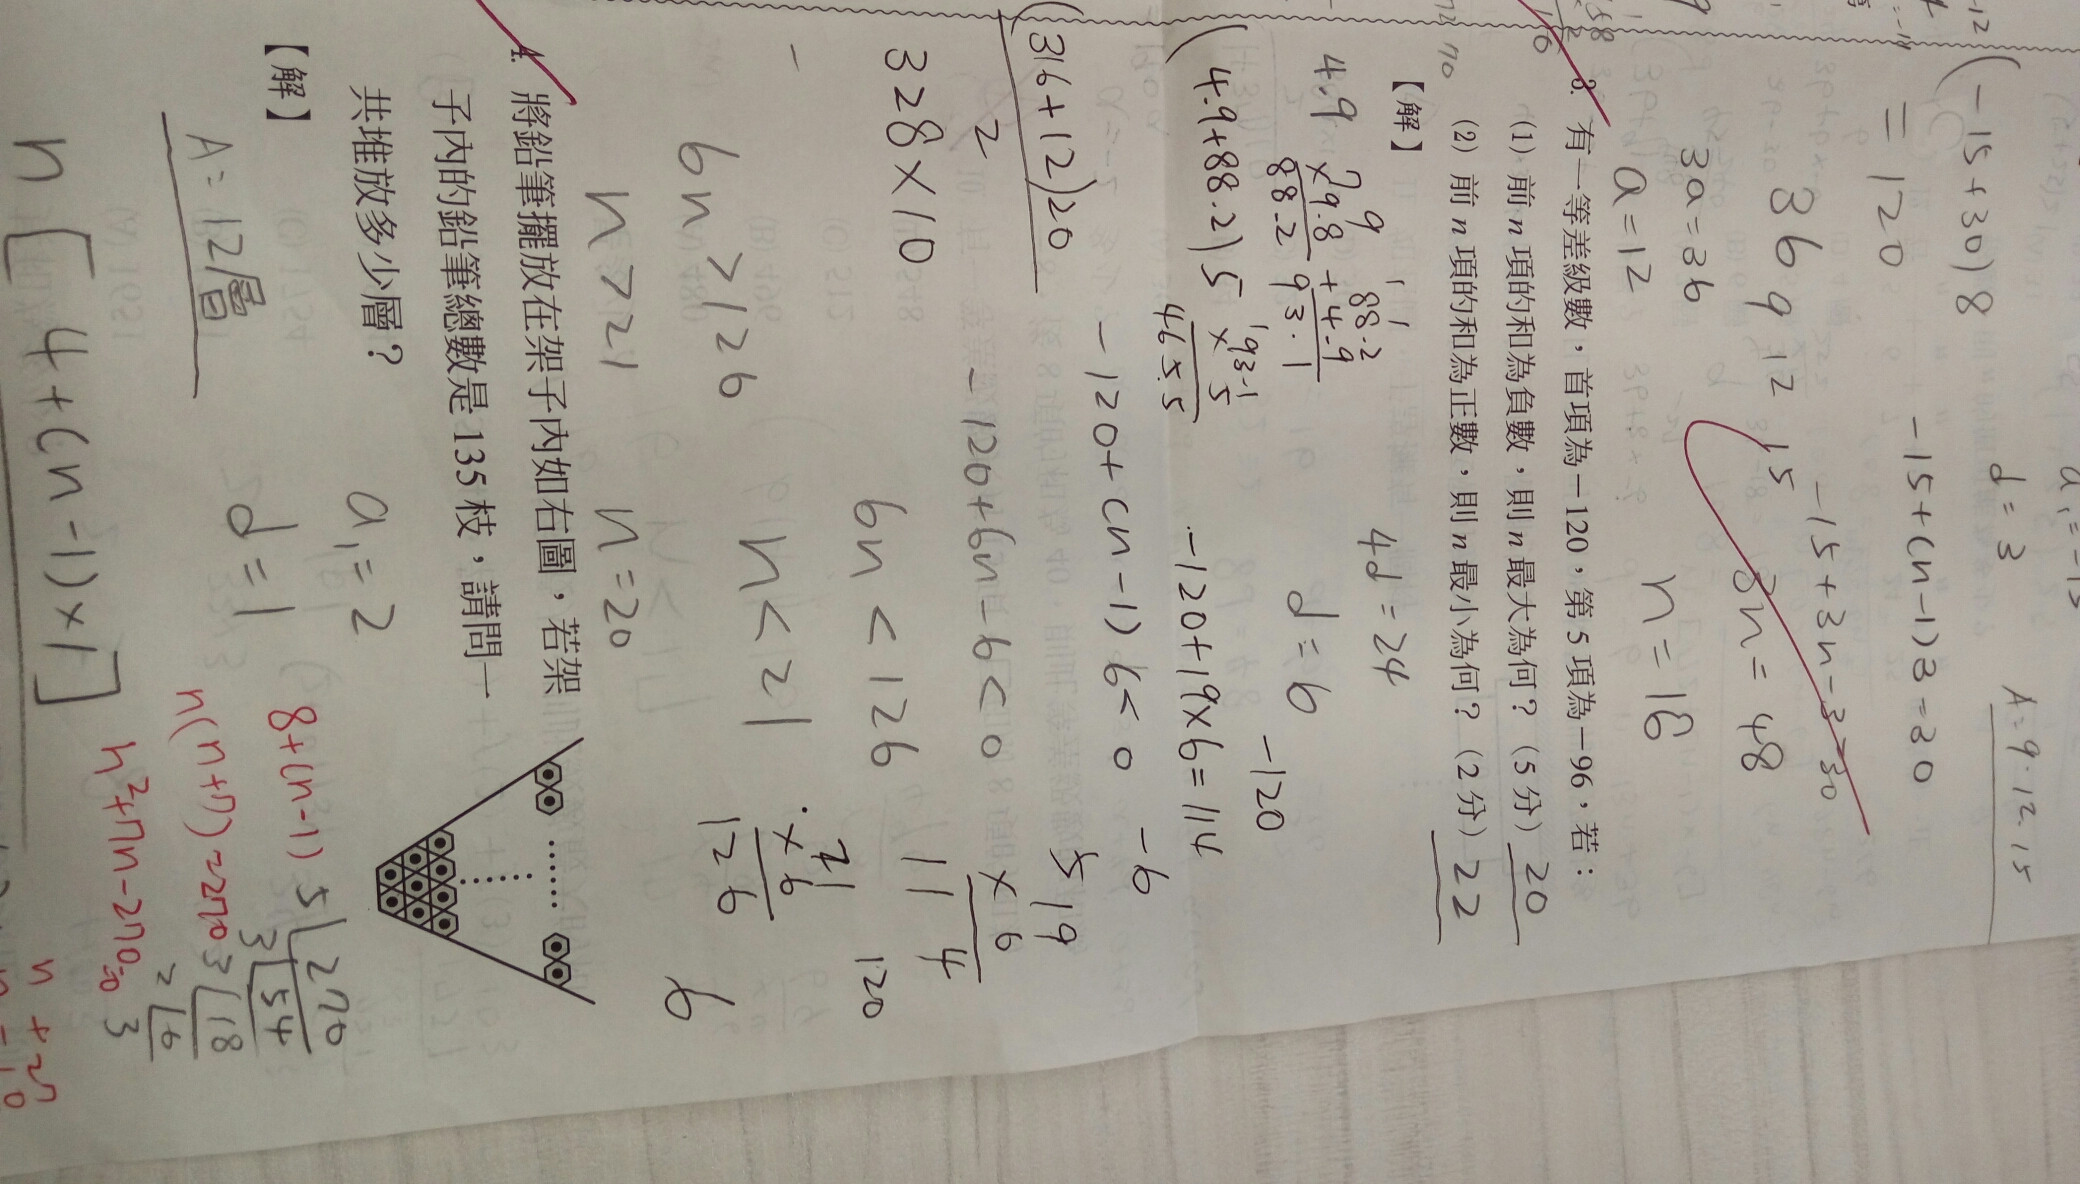 a₁=-15
d=3
A=9.12.15
(-15+30)8
=120
-15+(n-1)3=30
-15+3n-3=30
3n=48
n=16
36 9 12 15
3a=36
a=12
3. 有一等差級數，首項為－120，第 5 項為－96，若：
(1) 前 n 項的和為負數，則 n 最大為何？（5 分） 20
(2) 前 n 項的和為正數，則 n 最小為何？（2 分） 22
【解】
4d=24
d=6
4.9
×9.8
88.2
88.2
+4.9
93.1
(4.9+88.2)5
93.1
× 5
465.5
-120+19×6=114
-120
-6
(316+12)20
2
328×10
-120+(n-1)6<0
-120+6n-6<0
6n<126
n<21
19
× 6
114
120
21
× 6
126
6n>126
n>21
n=20
6
4. 將鉛筆擺放在架子內如右圖，若架
子內的鉛筆總數是 135 枝，請問一
共堆放多少層？
【解】
A=12層
a₁=2
d=1
n[4+(n-1)×1]
8+(n-1)
n(n+7)=270
n²+7n-270=0
5 270
3 54
3 18
2 6
3